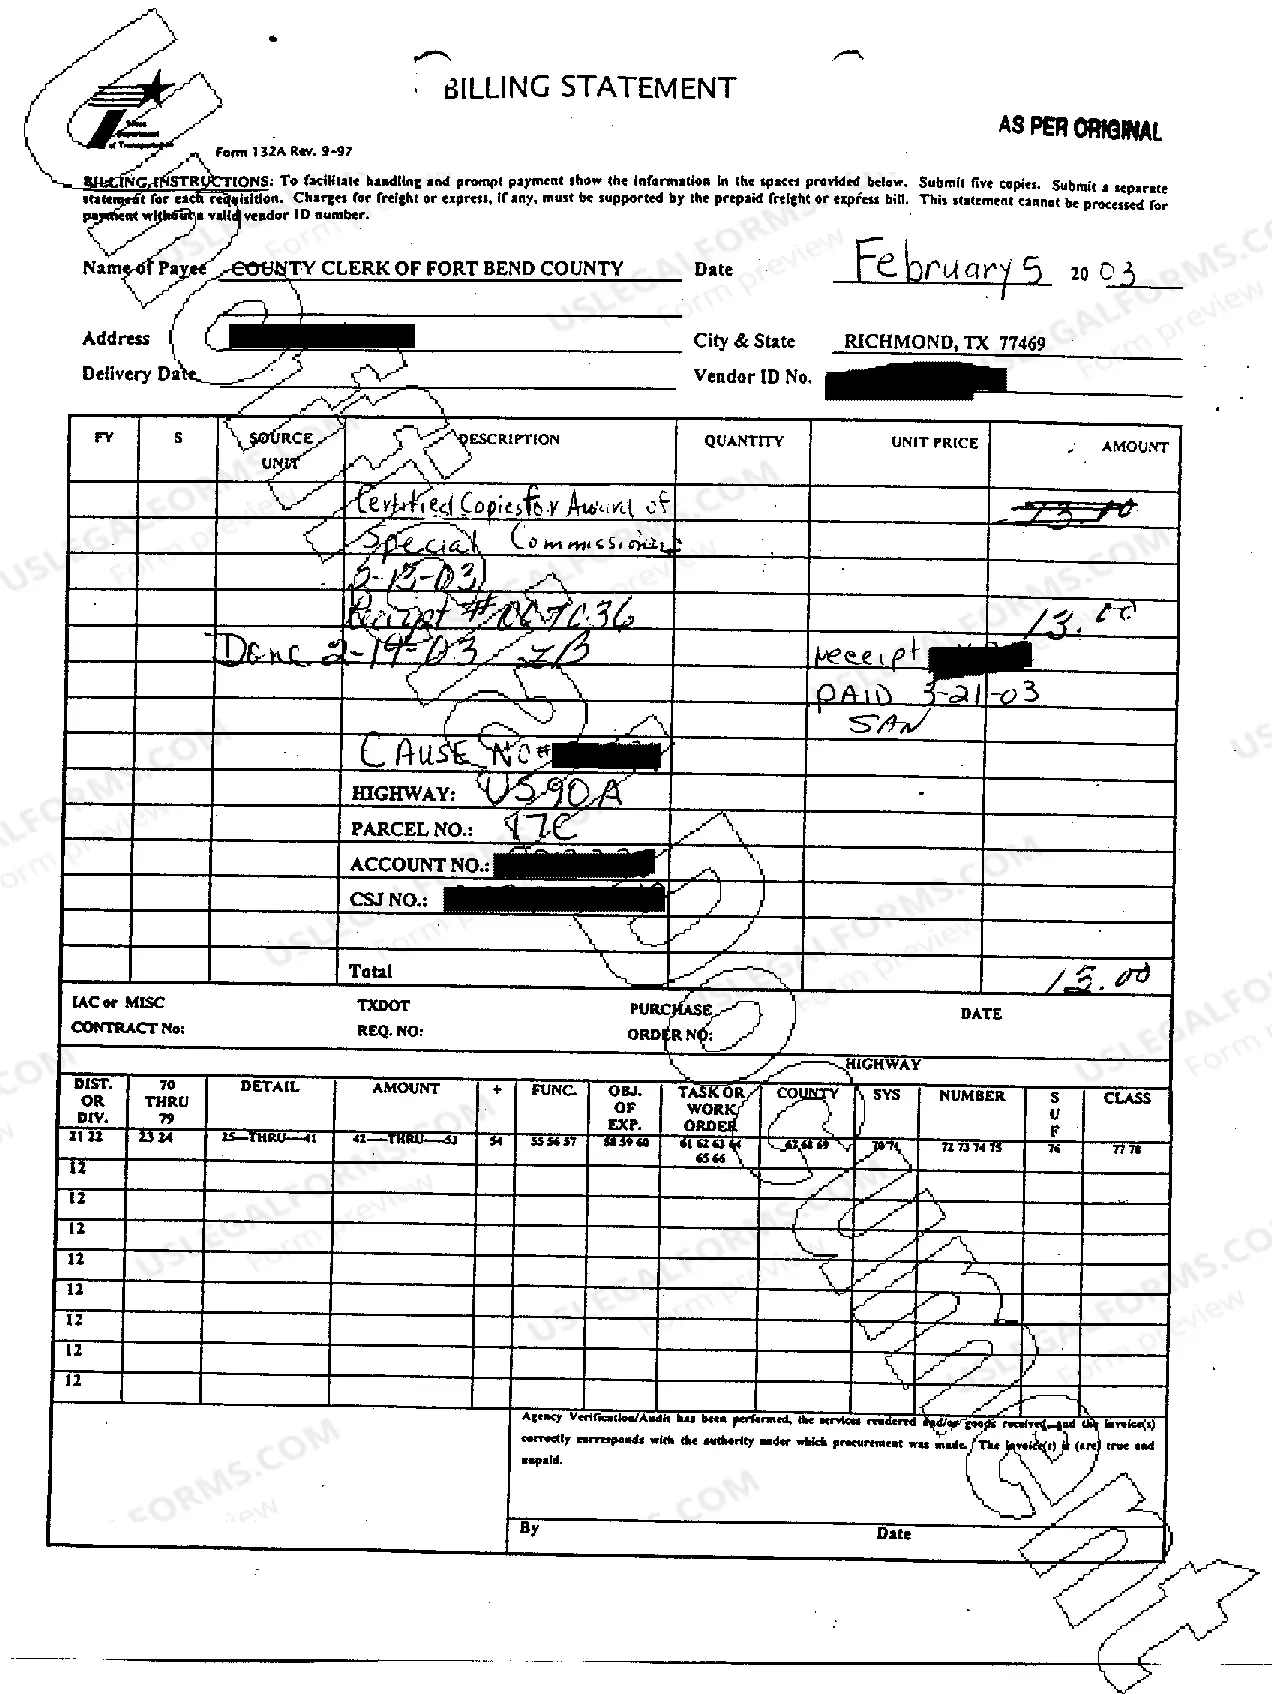 BILLING STATEMENT
AS PER ORIGINAL
Texas
Department
of Transportation
Form 132A Rev. 9-97
BILLING INSTRUCTIONS: To facilitate handling and prompt payment show the information in the spaces provided below. Submit five copies. Submit a separate
statement for each requisition. Charges for freight or express, if any, must be supported by the prepaid freight or express bill. This statement cannot be processed for
payment without a valid vendor ID number.
Name of Payee COUNTY CLERK OF FORT BEND COUNTY Date February 5 20 03
Address City & State RICHMOND, TX 77469
Delivery Date Vendor ID No.
FY S SOURCE UNIT DESCRIPTION QUANTITY UNIT PRICE AMOUNT
Certified Copies for Award of 13.00
Special Commissioners
3-13-03
Receipt # 13.00
Done 2-19-03 IB receipt
PAID 3-21-03
SAN
CAUSE NO#
HIGHWAY: US90A
PARCEL NO.:
ACCOUNT NO.:
CSJ NO.:
Total 13.00
IAC or MISC TXDOT PURCHASE DATE
CONTRACT No: REQ. NO: ORDER NO:
HIGHWAY
DIST. OR DIV. 70 THRU 79 DETAIL AMOUNT + FUNC. OBJ. OF EXP. TASK OR WORK ORDER COUNTY SYS NUMBER SUF CLASS
21 22 23 24 25—THRU—41 42—THRU—53 54 55 56 57 58 59 60 61 62 63 64 65 66 67 68 69 72 73 74 75 76 77 78
12
12
12
12
12
12
12
12
Agency Verification/Audit has been performed, the services rendered and/or goods received, and the invoice(s)
correctly corresponds with the authority under which procurement was made. The invoice(s) is (are) true and
unpaid.
By Date
Unofficial Document
USLEGALFORMS.COM
Form preview